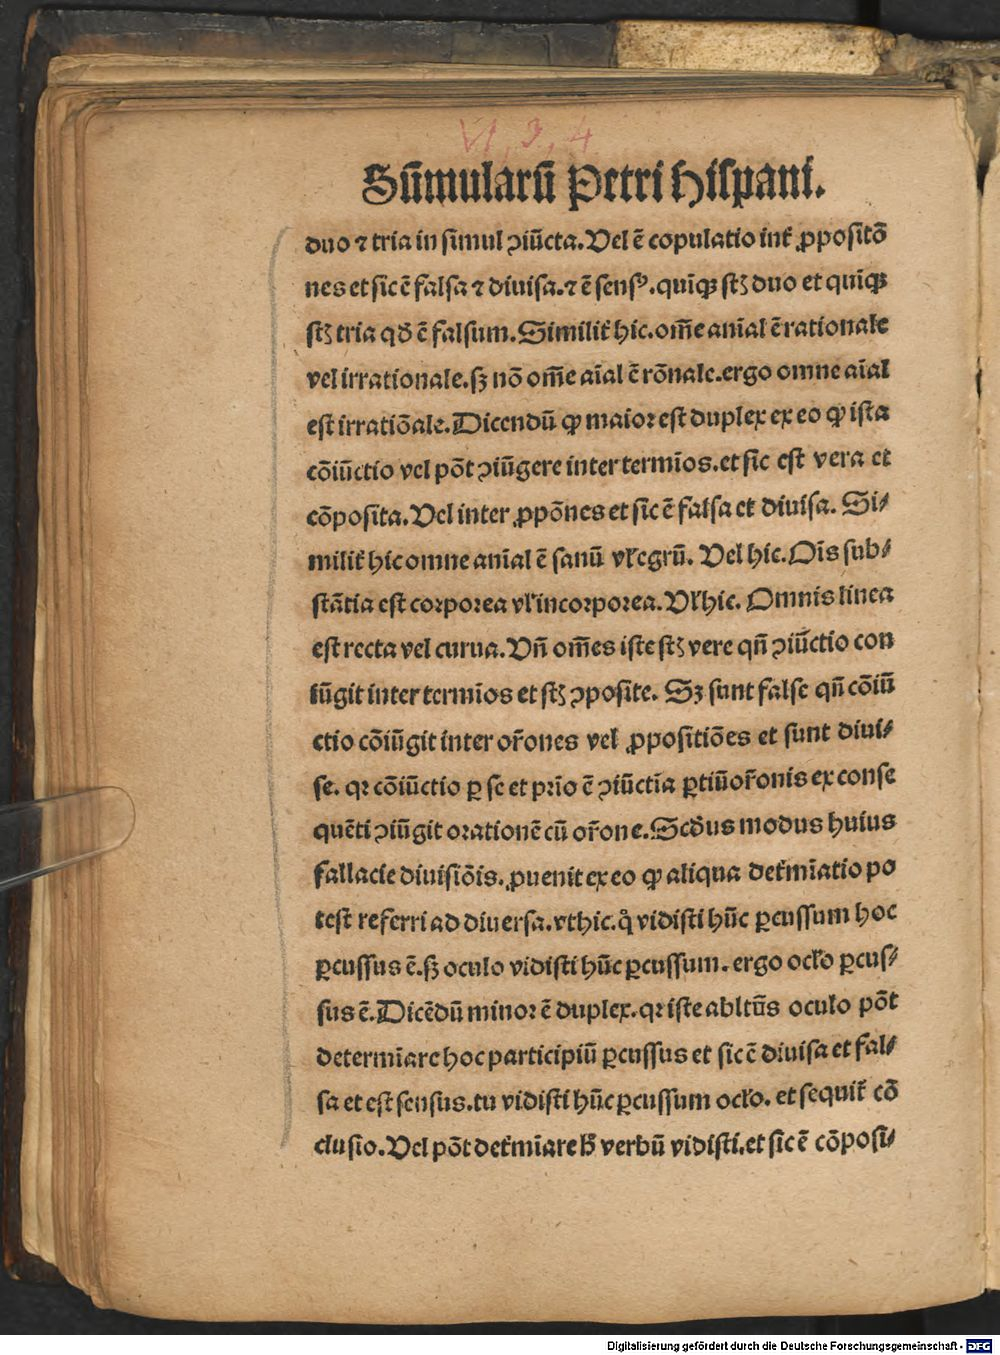 VI, 3, 4
Sūmularū Petri Hispani.
duo ⁊ tria in simul ꝯiūcta. Vel ē copulatio int̄ ꝓpositō
nes et sic ē falsa ⁊ diuisa. ⁊ ē sensꝰ. quīqꝫ stꝫ duo et quīqꝫ
stꝫ tria qđ ē falsum. Similit̄ hic. om̄e anīal ē rationale
vel irrationale. sꝫ nō om̄e aīal ē rōnale. ergo omne aīal
est irratiōale. Dicendū ꝙ maior est duplex ex eo ꝙ ista
cōiūctio vel pōt ꝯiūgere inter termīos. et sic est vera et
cōposita. Vel inter ꝓpōnes et sic ē falsa et diuisa. Si⸗
milit̄ hic omne anīal ē sanū vl̓ egrū. Vel hic. Oīs sub⸗
stātia est corporea vl̓ incorporea. Vl̓ hic. Omnis linea
est recta vel curua. Vñ om̄es iste stꝫ vere qñ ꝯiūctio con
iūgit inter termīos et stꝫ ꝯposite. Sꝫ sunt false qñ cōiū
ctio cōiūgit inter or̄ones vel ꝓpositiōes et sunt diui⸗
se. qꝛ cōiūctio ꝑ se et prīo ē ꝯiūctīa ꝑtiū or̄onis ex conse
quēti ꝯiūgit orationē cū or̄one. Scđus modus huius
fallacie diuisiōis. ꝓuenit ex eo ꝙ aliqua det̄mīatio po
test referri ad diuersa. vt hic. q̊ vidisti hūc ꝑcussum hoc
ꝑcussus ē. sꝫ oculo vidisti hūc ꝑcussum. ergo ocl̓o ꝑcus⸗
sus ē. Dicēdū minor ē duplex. qꝛ iste abltūs oculo pōt
determīare hoc participiū ꝑcussus et sic ē diuisa et fal⸗
sa et est sensus. tu vidisti hūc ꝑcussum ocl̓o. et sequit̄ cō
clusio. Vel pōt det̄mīare ħ verbū vidisti. et sic ē cōposi⸗
Digitalisierung gefördert durch die Deutsche Forschungsgemeinschaft - DFG